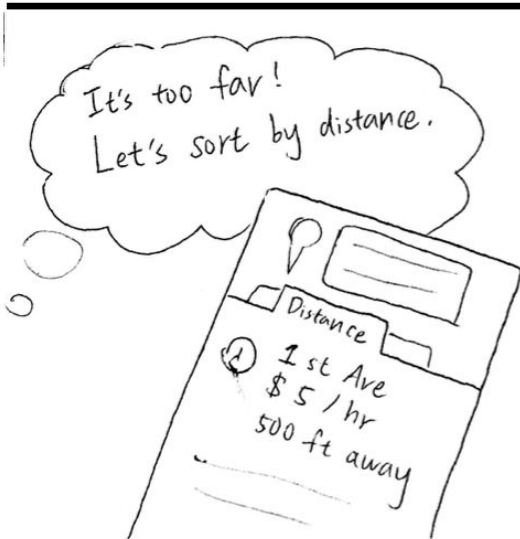 It's too far!
Let's sort by distance.
Distance
1st Ave
$5/hr
500 ft away